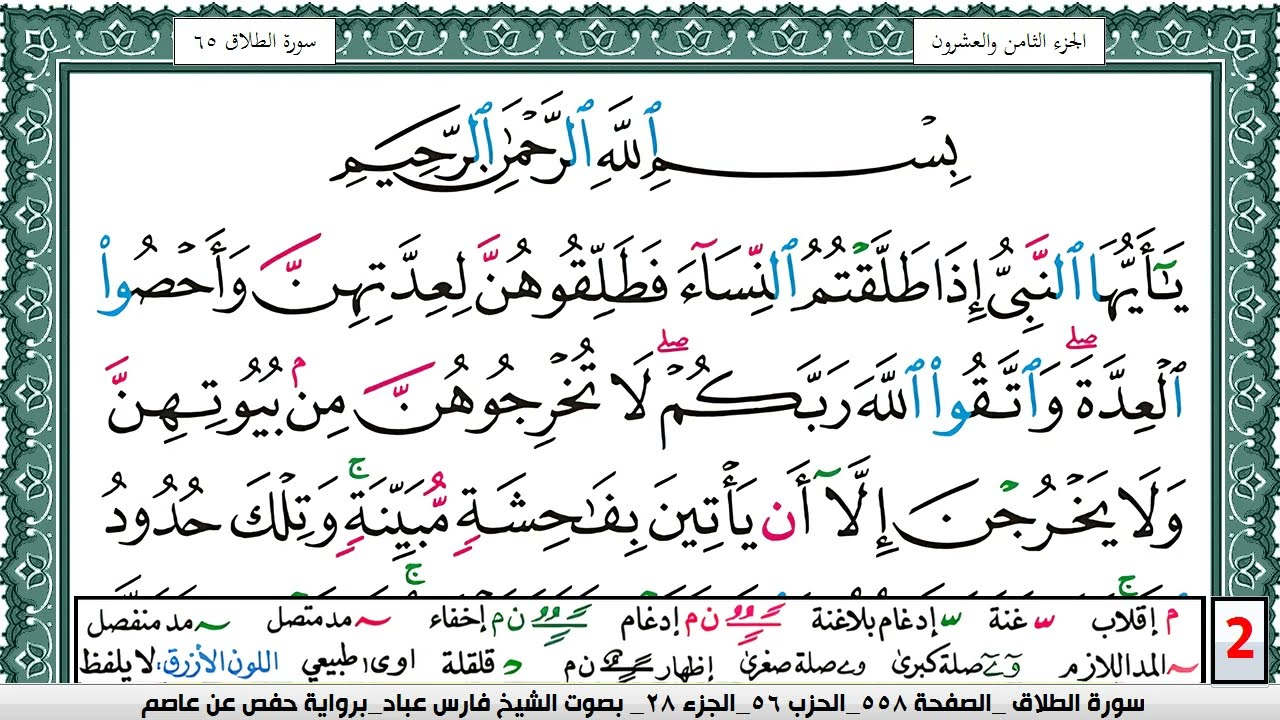 الجزء الثامن والعشرون
سورة الطلاق ٦٥
بِسْمِ ٱللَّهِ ٱلرَّحْمَٰنِ ٱلرَّحِيمِ
يَٰٓأَيُّهَا ٱلنَّبِىُّ إِذَا طَلَّقْتُمُ ٱلنِّسَآءَ فَطَلِّقُوهُنَّ لِعِدَّتِهِنَّ وَأَحْصُوا۟
ٱلْعِدَّةَ ۖ وَٱتَّقُوا۟ ٱللَّهَ رَبَّكُمْ ۖ لَا تُخْرِجُوهُنَّ مِنۢ بُيُوتِهِنَّ
وَلَا يَخْرُجْنَ إِلَّآ أَن يَأْتِينَ بِفَٰحِشَةٍ مُّبَيِّنَةٍ ۚ وَتِلْكَ حُدُودُ
م إقلاب ــ غنة ــ إدغام بلاغنة ــ ن م إدغام ــ ن م إخفاء ــ مد متصل ــ مد منفصل
ــ المد اللازم و ے صلة كبرى و ے صلة صغرى ن م إظهار د قلقلة اوى طبيعي اللون الأزرق: لا يلفظ
2
سورة الطلاق _الصفحة ٥٥٨_الحزب ٥٦_الجزء ٢٨_ بصوت الشيخ فارس عباد_برواية حفص عن عاصم